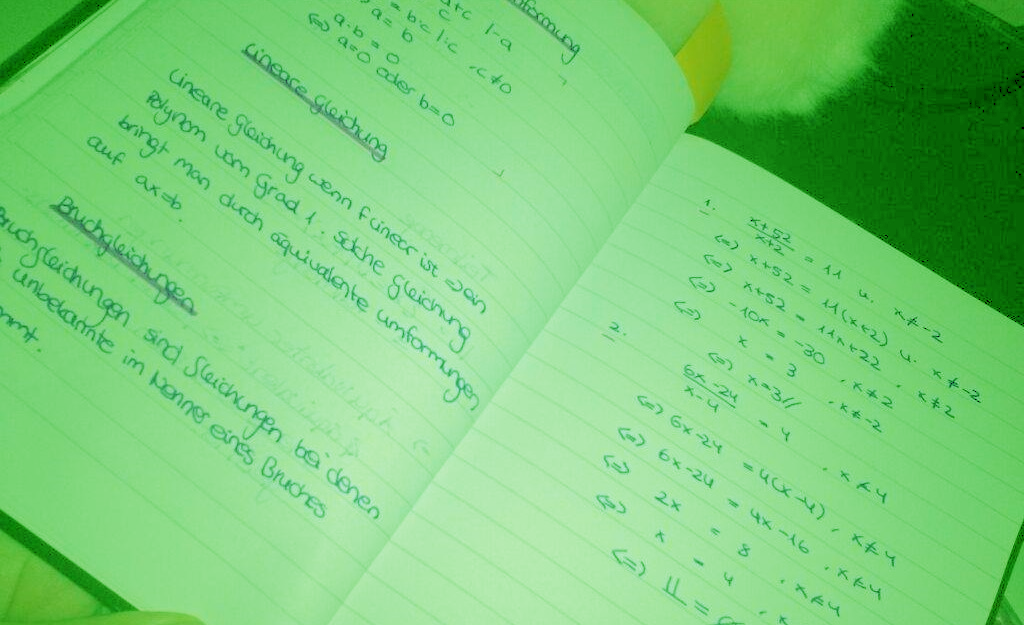 umformung
a+c |-a
= b·c |:c , c≠0
a·b = 0
<=> a=0 oder b=0
Lineare Gleichung
Lineare Gleichung wenn f linear ist => ein
Polynom vom Grad 1. Solche Gleichung
bringt man durch äquivalente umformungen
auf ax=b.
Bruchgleichungen
Bruchgleichungen sind Gleichungen bei denen
unbekannte im Nenner eines Bruches
1. x+52/x+2 = 11 u. x≠-2
<=> x+52 = 11(x+2) u. x≠-2
<=> x+52 = 11x+22 , x≠2
<=> -10x = -30 , x≠2
<=> x = 3 , x≠-2
<=> x=3//
2. 6x-24/x-4 = 4 , x≠4
<=> 6x-24 = 4(x-4) , x≠4
<=> 6x-24 = 4x-16 , x≠4
<=> 2x = 8 , x≠4
<=> x = 4 , x
<=> =